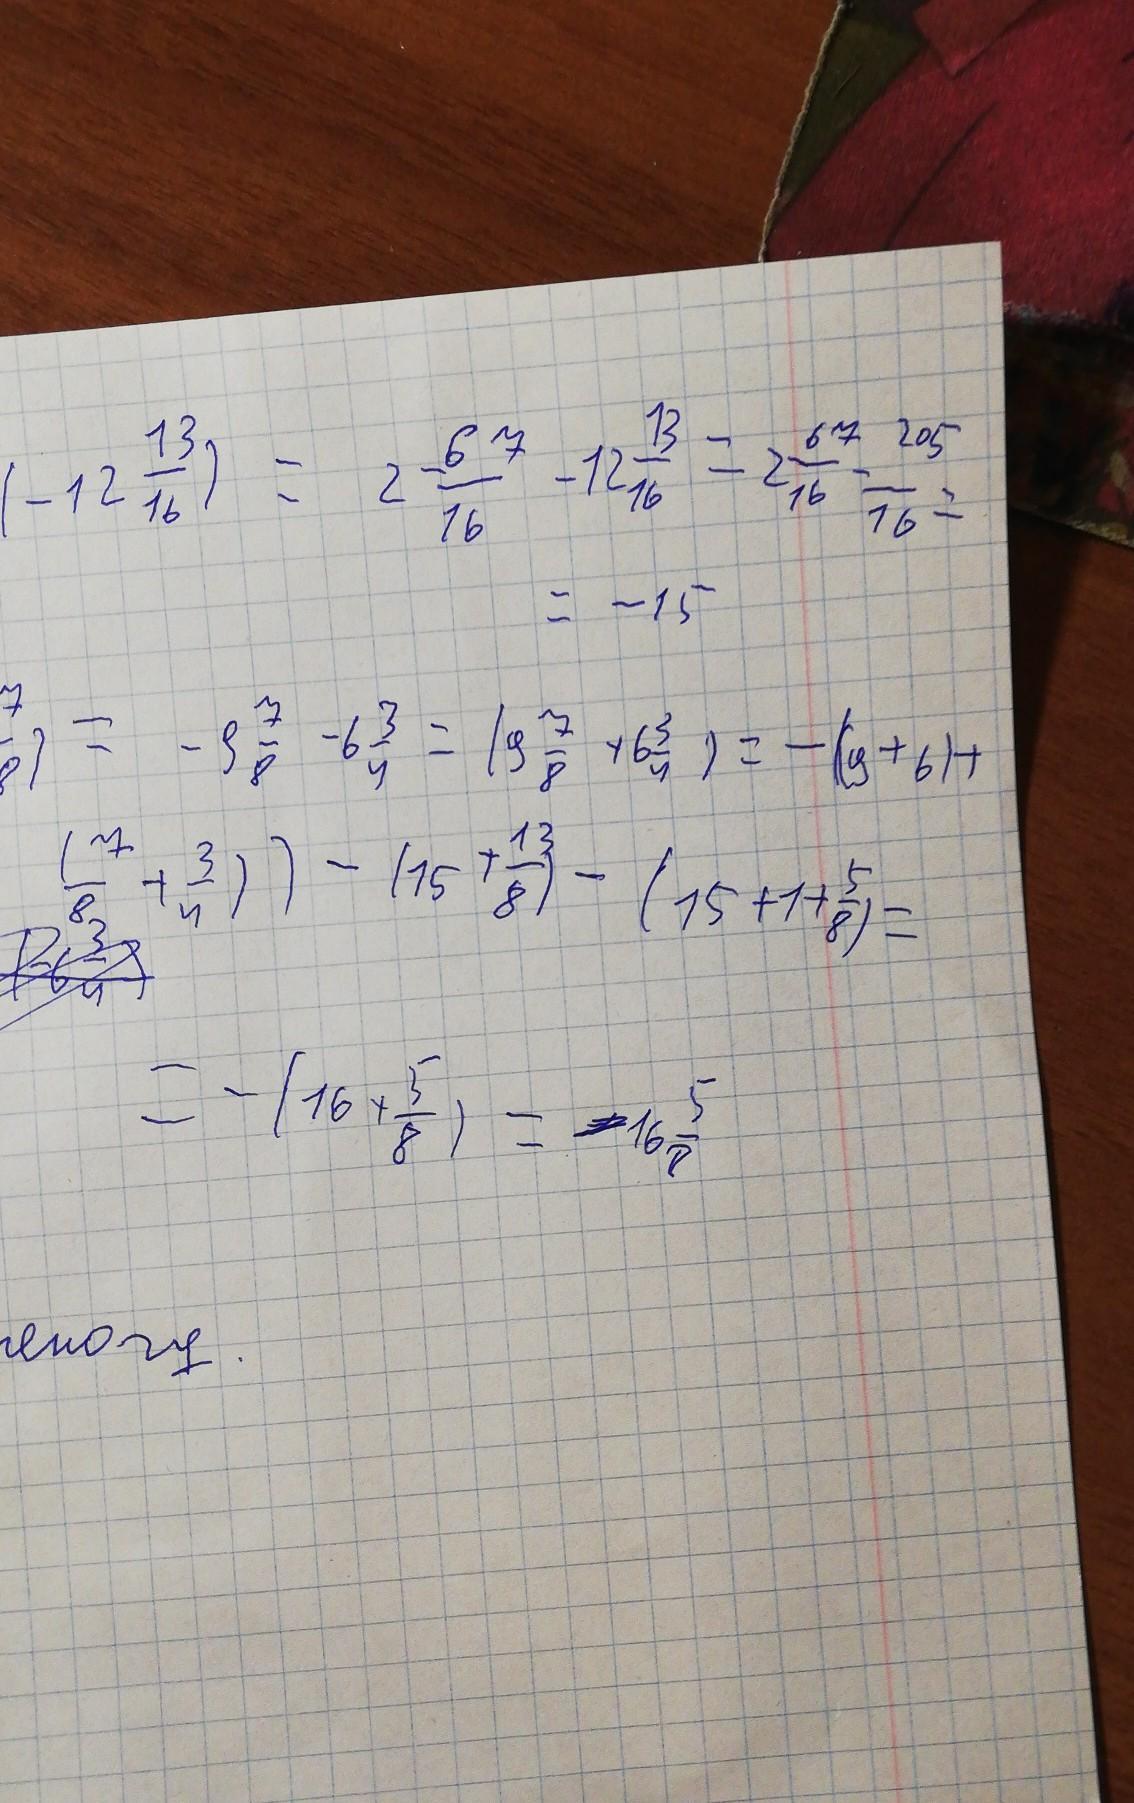 (-12 13/16) = 2 67/16 - 12 13/16 = 2 67/16 - 205/16 =
= -15
7/8) = -9 7/8 - 6 3/4 = (9 7/8 + 6 3/4) = -(9+6)+
(7/8 + 3/4)) - (15 + 13/8) - (15+1+5/8) =
= -(16 + 5/8) = -16 5/8